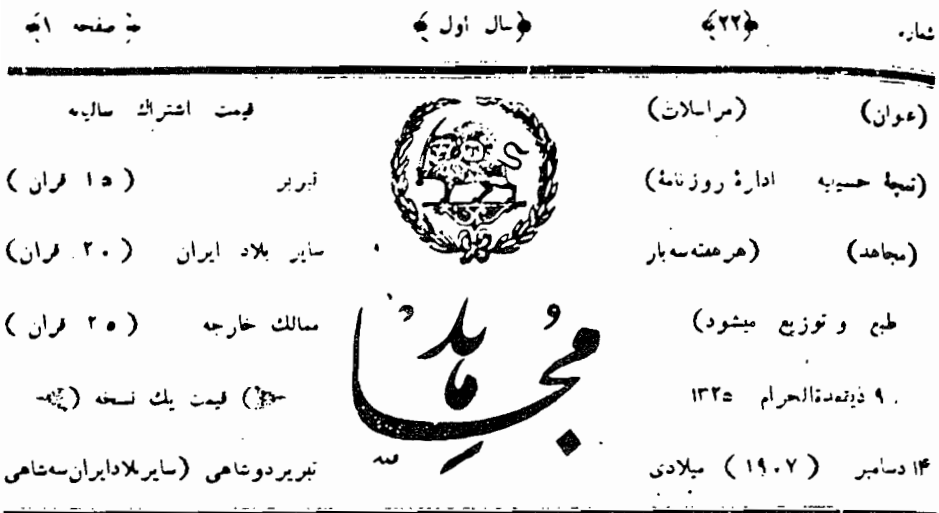 شماره ﴿۲۲﴾ ﴿سال أول﴾ ﴿صفحه ۱﴾
(عنوان) (مراسلات)
(تیمچهٔ حسینیه ادارهٔ روزنامهٔ)
(مجاهد) (هرهفته‌سه‌بار
طبع و توزیع میشود)
۹ ذیقعدةالحرام ۱۳۲۵
۱۴ دسامبر (۱۹۰۷) میلادی
مُجاهد
قیمت اشتراك سالیه
تبریز (۱۵ قران)
سایر بلاد ایران (۲۰ قران)
ممالك خارجه (۲۵ قران)
﴾ قیمت یك نسخه ﴿
تبریزدوشاهی (سایربلادایران‌سه‌شاهی